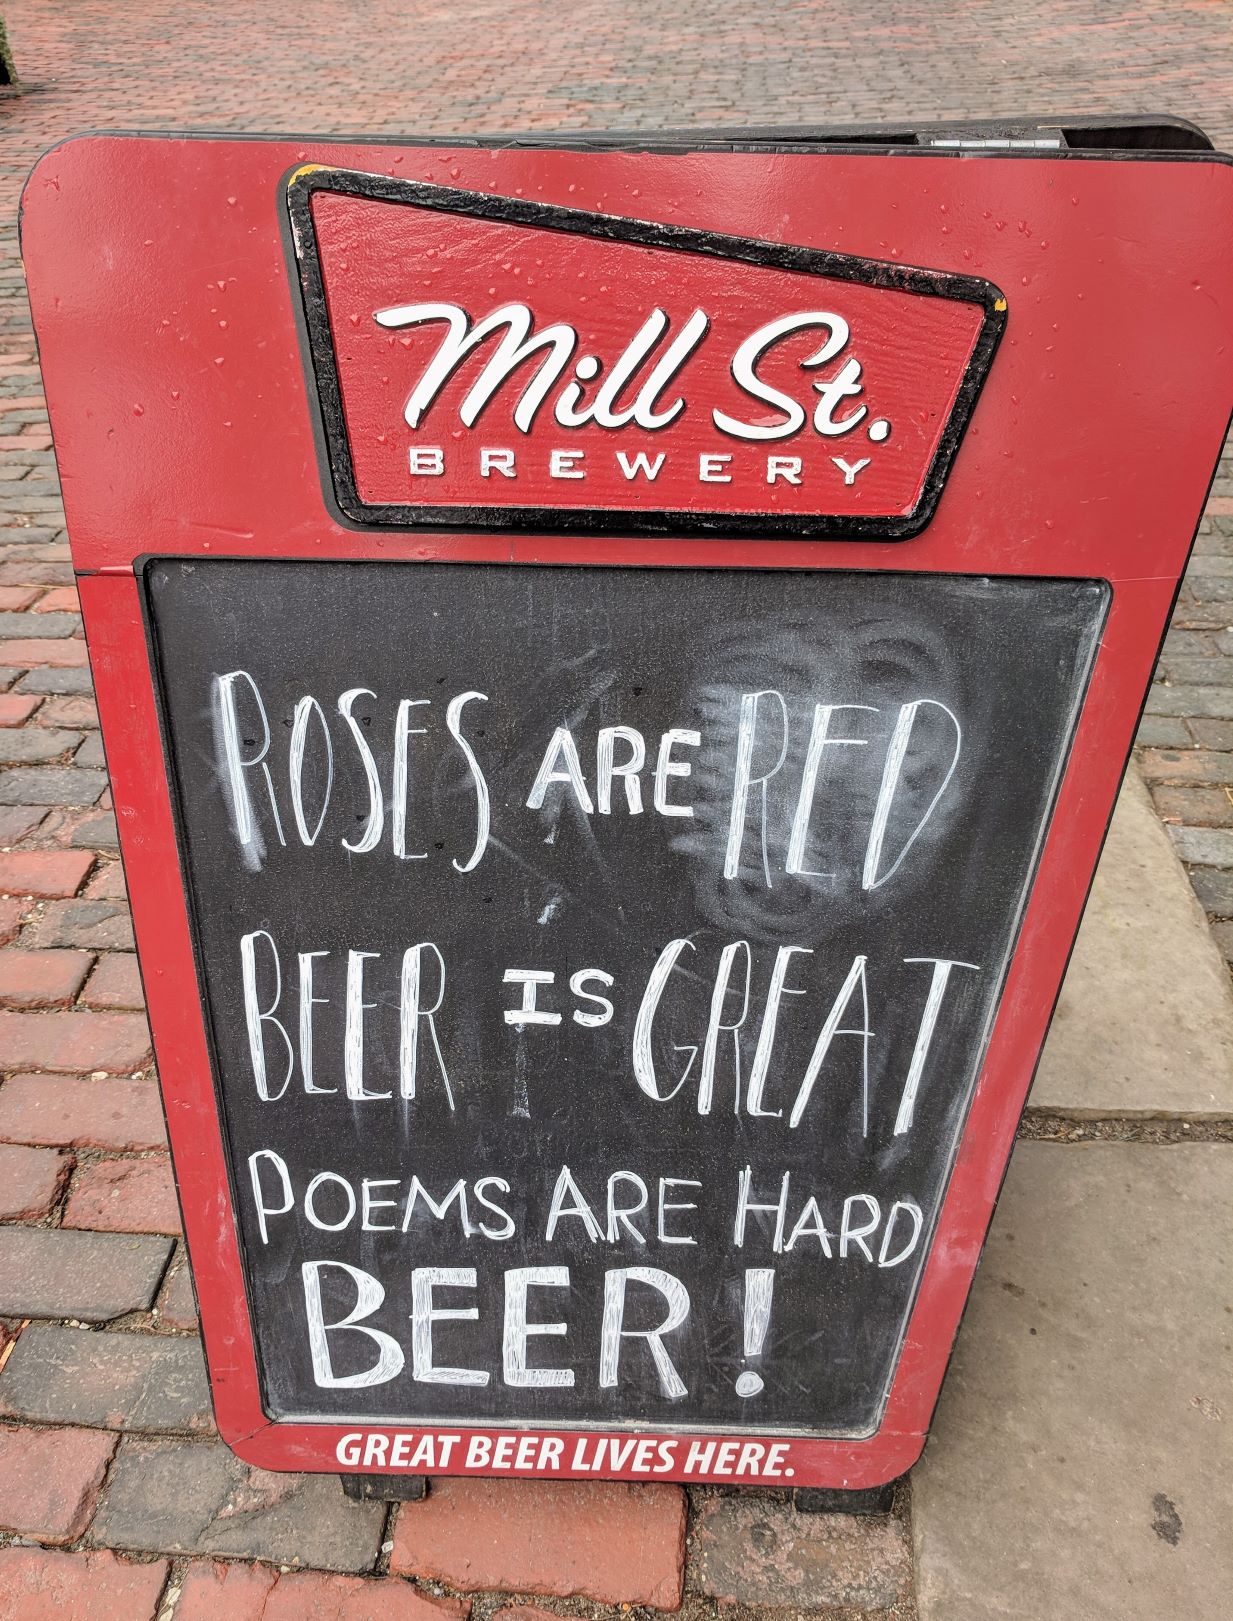 Mill St.
BREWERY
ROSES ARE RED
BEER IS GREAT
POEMS ARE HARD
BEER!
GREAT BEER LIVES HERE.